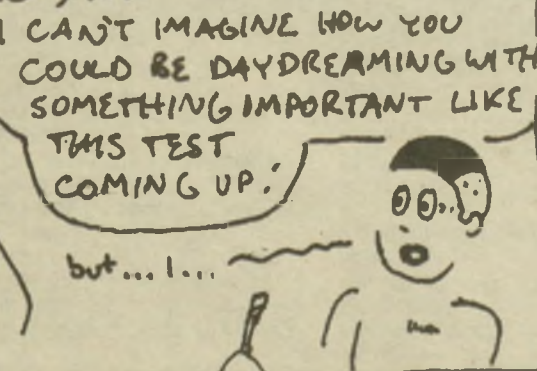 I CAN'T IMAGINE HOW YOU
COULD BE DAYDREAMING WITH
SOMETHING IMPORTANT LIKE
THIS TEST
COMING UP!
but...I...